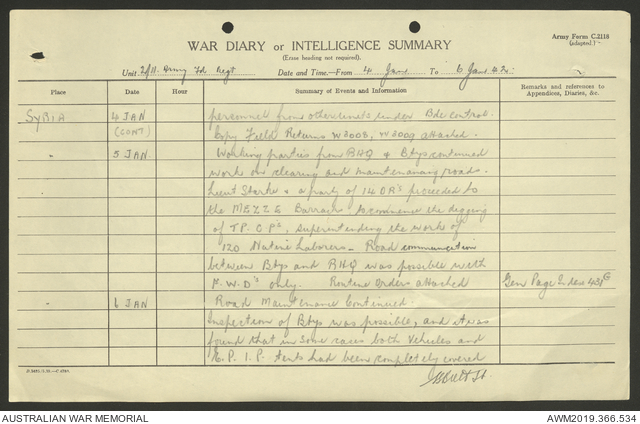 Army Form C.2118
(adapted.)
WAR DIARY or INTELLIGENCE SUMMARY
(Erase heading not required).
Unit 2/11. Army Fd Regt Date and Time.—From 4 Jan To 6 Jan 42.
Place Date Hour Summary of Events and Information Remarks and references to Appendices, Diaries, &c.
SYRIA 4 JAN personnel from other units under Bde control.
(CONT) Copy Field Returns W3008, W3009 attached.
" 5 JAN Working parties from RHQ & Btys continued
work on clearing and maintenance roads.
Lieut Starke & a party of 14 OR's proceeded to
the MEZZE Barracks to commence the digging
of TP. C Ps, superintending the works of
120 Native Laborers — Road communication
between Btys and RHQ was possible with
F.W.D's only. Routine Orders attached Gen Page Index
" 6 JAN Road Maintenance Continued.
Inspection of Btys was possible, and it was
found that in some cases both Vehicles and
E.P.I.P. tents had been completely covered
AUSTRALIAN WAR MEMORIAL AWM2019.366.534